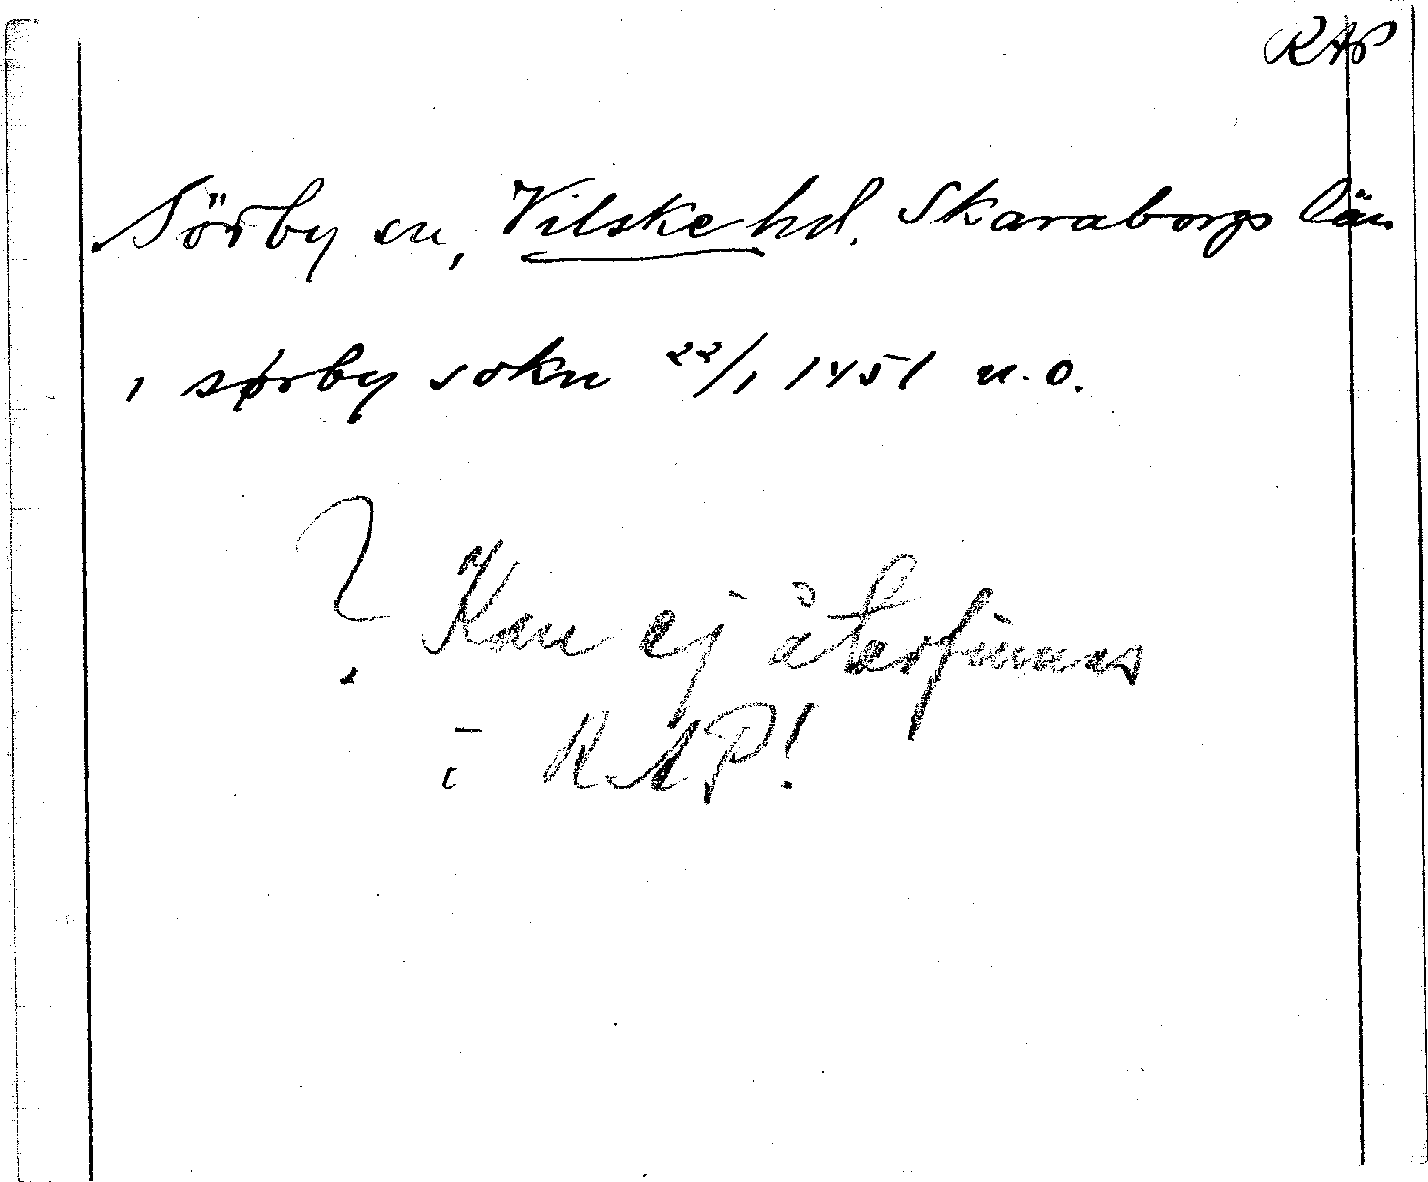 RAP
Sörby sn, Vilske hd. Skaraborgs län
i sørby sokn 22/1 1451 n.o.
? Kan ej återfinnas
i RAP!